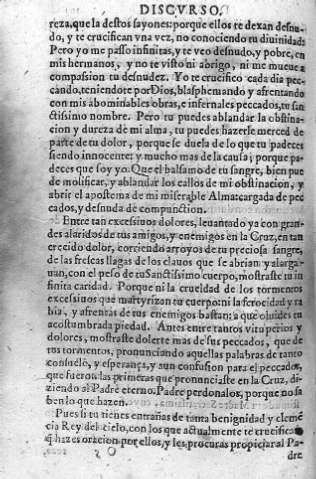 DISCVRSO.
reza, que la destos sayones: porque ellos te dexan desnu-
do, y te crucifican vna vez, no conociendo tu diuinidad:
Pero yo me passo infinitas, y te veo desnudo, y pobre, en
mis hermanos, y no te visto ni abrigo, ni me mueue a
compasion tu desnudez. Yo te crucifico cada dia pec-
cando, teniendote por Dios, blasphemando y afrentando
con mis abominables obras, e infernales peccados, tu san
ctissimo nombre. Pero tu puedes ablandar la obstina-
cion y dureza de mi alma, tu puedes hazerle merced de
parte de tu dolor, porque se duela de lo que tu padeces
siendo innocente: y mucho mas de la causa; porque pa-
deces que soy yo. Que el balsamo de tu sangre, bien pue
de molificar, y ablandar los callos de mi obstinacion, y
abrir el apostema de mi miserable Alma: cargada de pec
cados, y desnuda de compunction.
Entre tan excessiuos dolores, leuantado ya con gran-
des alaridos de tus amigos, y enemigos en la Cruz, en tan
crecido dolor, corriendo arroyos de tu preciosa sangre,
de las frescas llagas de los clauos que se abrian y alarga-
uan, con el peso de tu Sanctissimo cuerpo, mostraste tu in
finita caridad. Porque ni la crueldad de los tormentos
excessiuos que martyrizan tu cuerpo: ni la ferocidad y ra
bia, y afrentas de tus enemigos bastan: a que oluides tu
acostumbrada piedad. Antes entre tantos vituperios y
dolores, mostraste dolerte mas de sus peccados, que de
tus tormentos, pronunciando aquellas palabras de tanto
consuelo, y esperança, y aun confusion para el peccador,
que fueron las primeras que pronunciaste en la Cruz, di-
ziendo al Padre eterno. Padre perdonalos, porque no sa
ben lo que hazen.
Pues si tu tienes entrañas de tanta benignidad y clemē
cia Rey del cielo, con los que actualmente te crucifican
q̃ hazes oracion por ellos, y les procuras propiciar al Pa-
dre